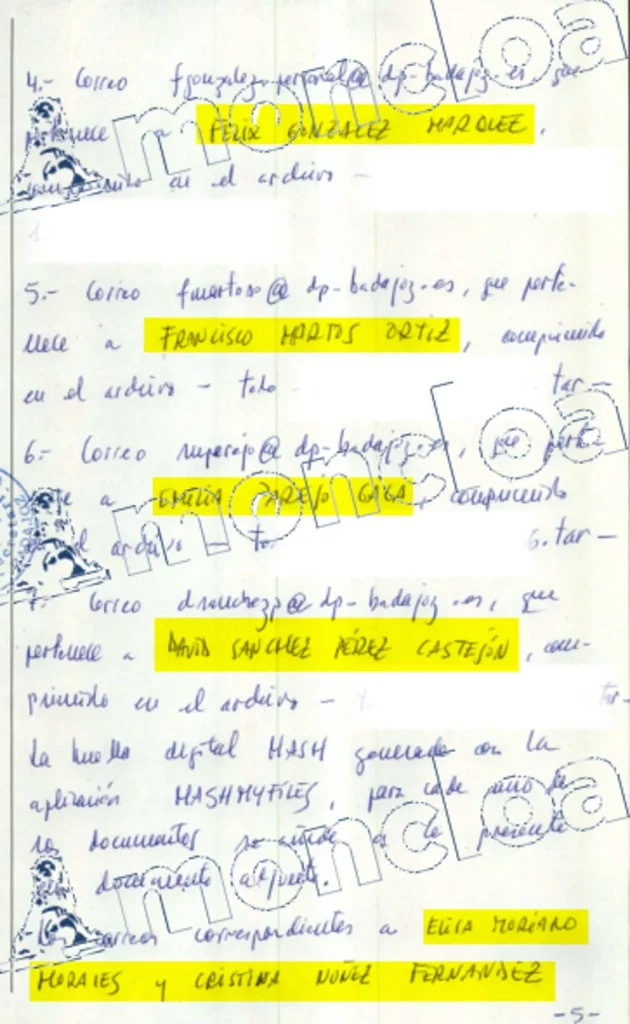 4.- Correo fgonzalez.personal@dp-badajoz.es, que
pertenece a FELIX GONZALEZ MARQUEZ,
comprimido en el archivo -
5.- Correo fmartoso@dp-badajoz.es, que perte-
nece a FRANCISCO MARTOS ORTIZ, comprimido
en el archivo - todo tar-
6.- Correo @dp-badajoz.es, que perte
nece a EMILIA PAREJO GAGA, comprimido
en el archivo - to 6.tar-
7.- Correo dsanchezp@dp-badajoz.es, que
pertenece a DAVID SANCHEZ PÉREZ CASTEJÓN, com-
primido en el archivo - tar-
La huella digital HASH generada con la
aplicación HASHMYFILES, para cada uno de
los documentos se a la presente
en documento adjunto.
Los correos correspondientes a ELISA MORIANO
MORALES y CRISTINA NUÑEZ FERNANDEZ
-5-
moncloa
moncloa
moncloa